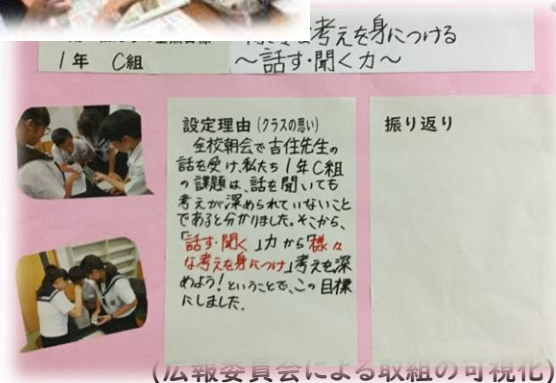 1年 C組
な考えを身につける
～話す・聞く力～
設定理由(クラスの思い)
全校朝会で吉住先生の
話を受け、私たち1年C組
の課題は、話を聞いても
考えが深められていないこと
であると分かりました。そこから、
「話す・聞く」力から「様々
な考えを身につけ」考えを深
めよう!ということで、この目標
にしました。
振り返り
(広報委員会による取組の可視化)